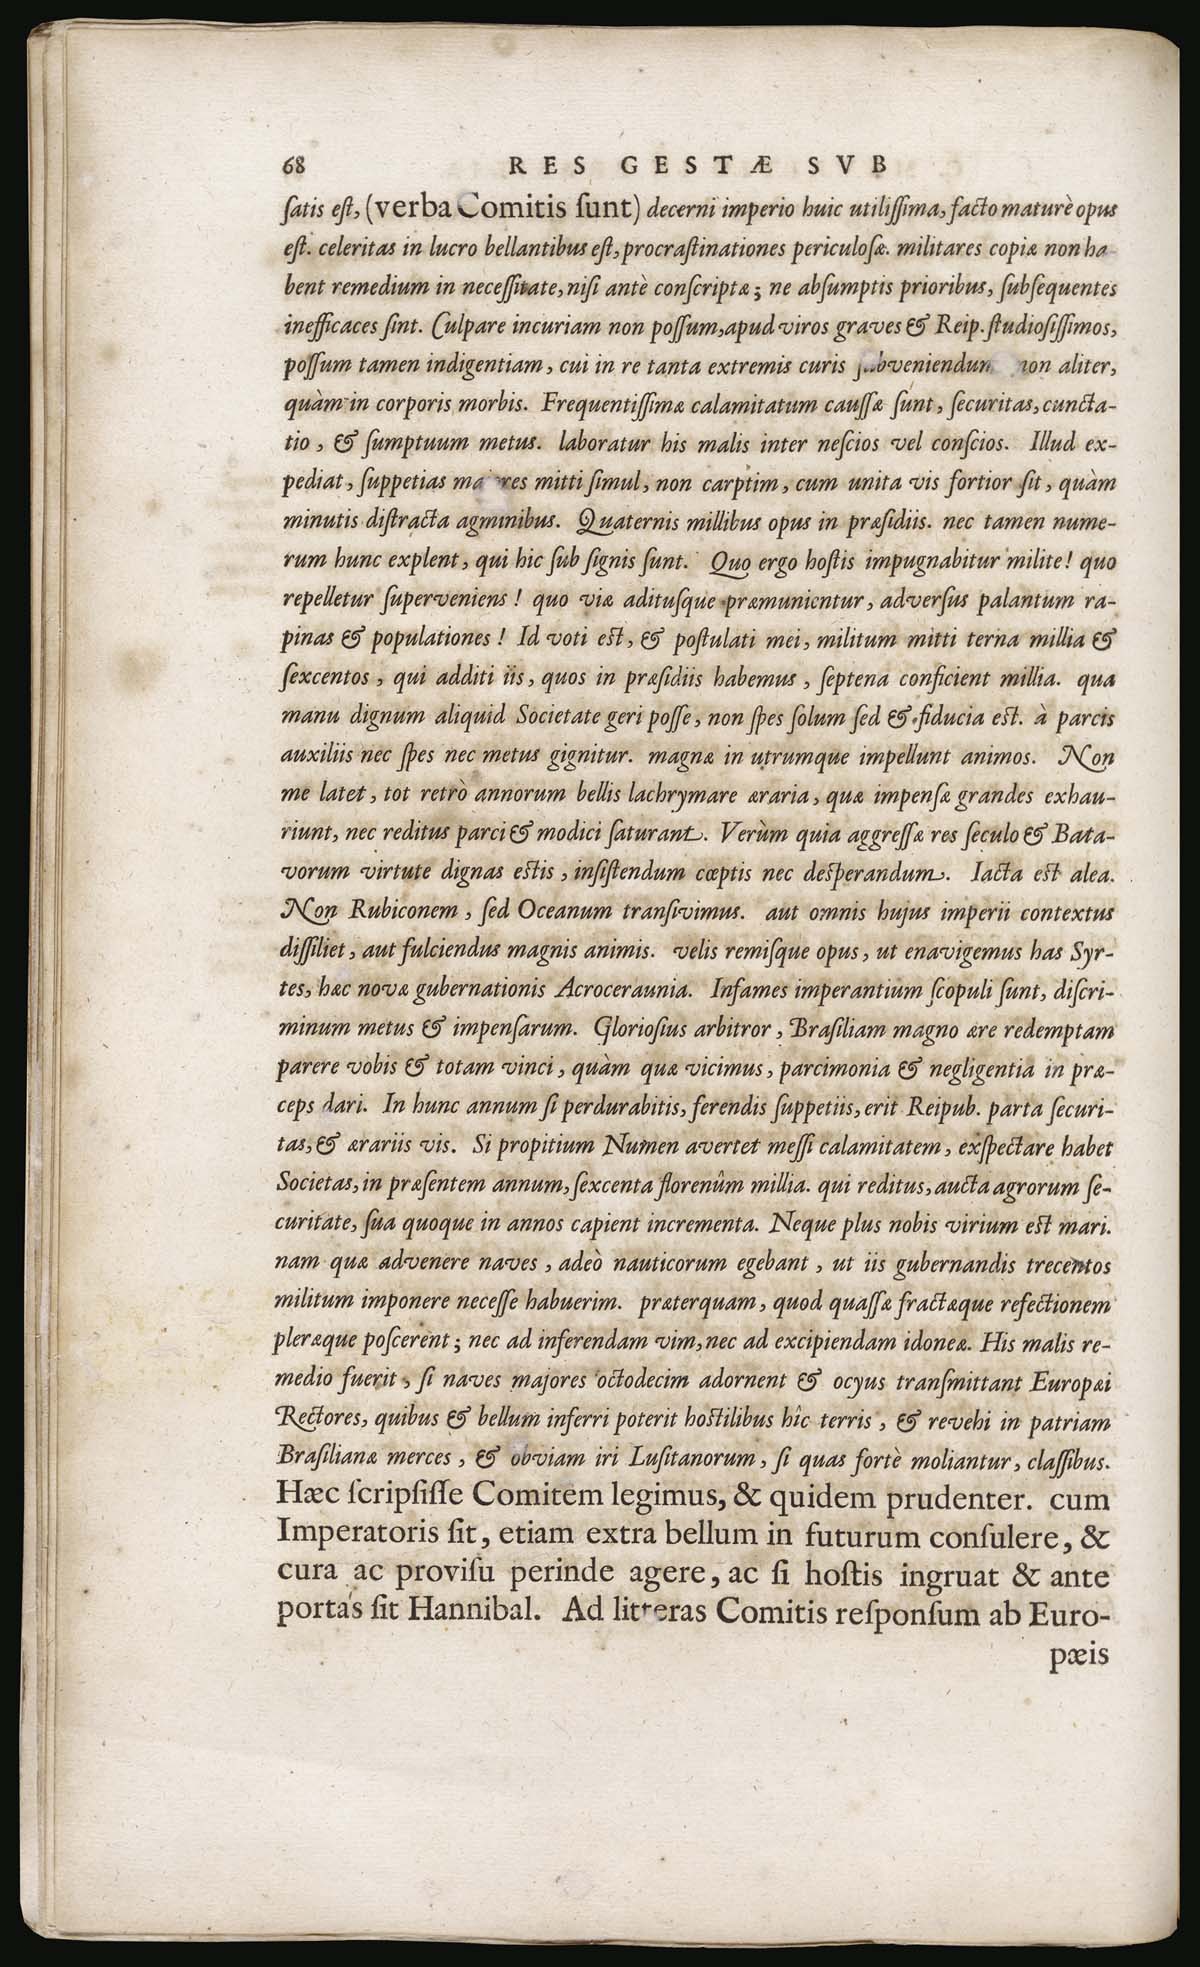 68 RES GESTÆ SVB
ſatis eſt, (verba Comitis ſunt) decerni imperio huic utiliſſima, facto maturè opus
eſt. celeritas in lucro bellantibus eſt, procraſtinationes periculoſæ. militares copiæ non ha-
bent remedium in neceſſitate, niſi antè conſcriptæ; ne abſumptis prioribus, ſubſequentes
inefficaces ſint. Culpare incuriam non poſſum, apud viros graves & Reip. ſtudioſiſſimos,
poſſum tamen indigentiam, cui in re tanta extremis curis ſubveniendum non aliter,
quàm in corporis morbis. Frequentiſſimæ calamitatum cauſſæ ſunt, ſecuritas, cuncta-
tio, & ſumptuum metus. laboratur his malis inter neſcios vel conſcios. Illud ex-
pediat, ſuppetias majores mitti ſimul, non carptim, cum unita vis fortior ſit, quàm
minutis diſtracta agminibus. Quaternis millibus opus in præſidiis. nec tamen nume-
rum hunc explent, qui hic ſub ſignis ſunt. Quo ergo hoſtis impugnabitur milite! quo
repelletur ſuperveniens! quo viæ adituſque præmunientur, adverſus palantum ra-
pinas & populationes! Id voti est, & poſtulati mei, militum mitti terna millia &
ſexcentos, qui additi iis, quos in præſidiis habemus, ſeptena conficient millia. qua
manu dignum aliquid Societate geri poſſe, non ſpes ſolum ſed & fiducia est. à parcis
auxiliis nec ſpes nec metus gignitur. magnæ in utrumque impellunt animos. Non
me latet, tot retrò annorum bellis lachrymare æraria, quæ impenſæ grandes exhau-
riunt, nec reditus parci & modici ſaturant. Verùm quia aggreſſæ res ſeculo & Bata-
vorum virtute dignas estis, inſiſtendum cœptis nec desperandum. Iacta est alea.
Non Rubiconem, ſed Oceanum tranſivimus. aut omnis hujus imperii contextus
diſſiliet, aut fulciendus magnis animis. velis remiſque opus, ut enavigemus has Syr-
tes, hæc novæ gubernationis Acroceraunia. Infames imperantium ſcopuli ſunt, diſcri-
minum metus & impenſarum. Glorioſius arbitror, Braſiliam magno ære redemptam
parere vobis & totam vinci, quàm quæ vicimus, parcimonia & negligentia in præ-
ceps dari. In hunc annum ſi perdurabitis, ferendis ſuppetiis, erit Reipub. parta ſecuri-
tas, & ærariis vis. Si propitium Numen avertet meſſi calamitatem, exſpectare habet
Societas, in præſentem annum, ſexcenta florenûm millia. qui reditus, aucta agrorum ſe-
curitate, ſua quoque in annos capient incrementa. Neque plus nobis virium est mari.
nam quæ advenere naves, adeò nauticorum egebant, ut iis gubernandis trecentos
militum imponere neceſſe habuerim. præterquam, quod quaſſæ fractæque refectionem
pleræque poſcerent; nec ad inferendam vim, nec ad excipiendam idoneæ. His malis re-
medio fuerit, ſi naves majores octodecim adornent & ocyus tranſmittant Europæi
Rectores, quibus & bellum inferri poterit hostilibus hîc terris, & revehi in patriam
Braſilianæ merces, & obviam iri Luſitanorum, ſi quas fortè moliantur, claſſibus.
Hæc ſcripſiſſe Comitem legimus, & quidem prudenter. cum
Imperatoris ſit, etiam extra bellum in futurum conſulere, &
cura ac proviſu perinde agere, ac ſi hoſtis ingruat & ante
portas ſit Hannibal. Ad litteras Comitis reſponſum ab Euro-
pæis